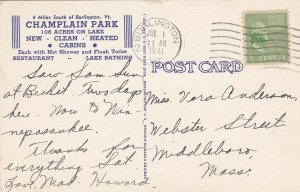 4 Miles South of Burlington, Vt.
CHAMPLAIN PARK
106 ACRES ON LAKE
NEW - CLEAN - HEATED
• CABINS •
Each with Hot Shower and Flush Toilet
RESTAURANT LAKE BATHING
BURLINGTON
JUL 1
11 AM
1941
POST CARD
Saw Sam Sun
at Bechet. Two days
here. Now to Win-
nepasaukee.
Thanks for
everything Sat
Howard
Miss Vera Anderson,
Webster Street
Middleboro,
Mass.